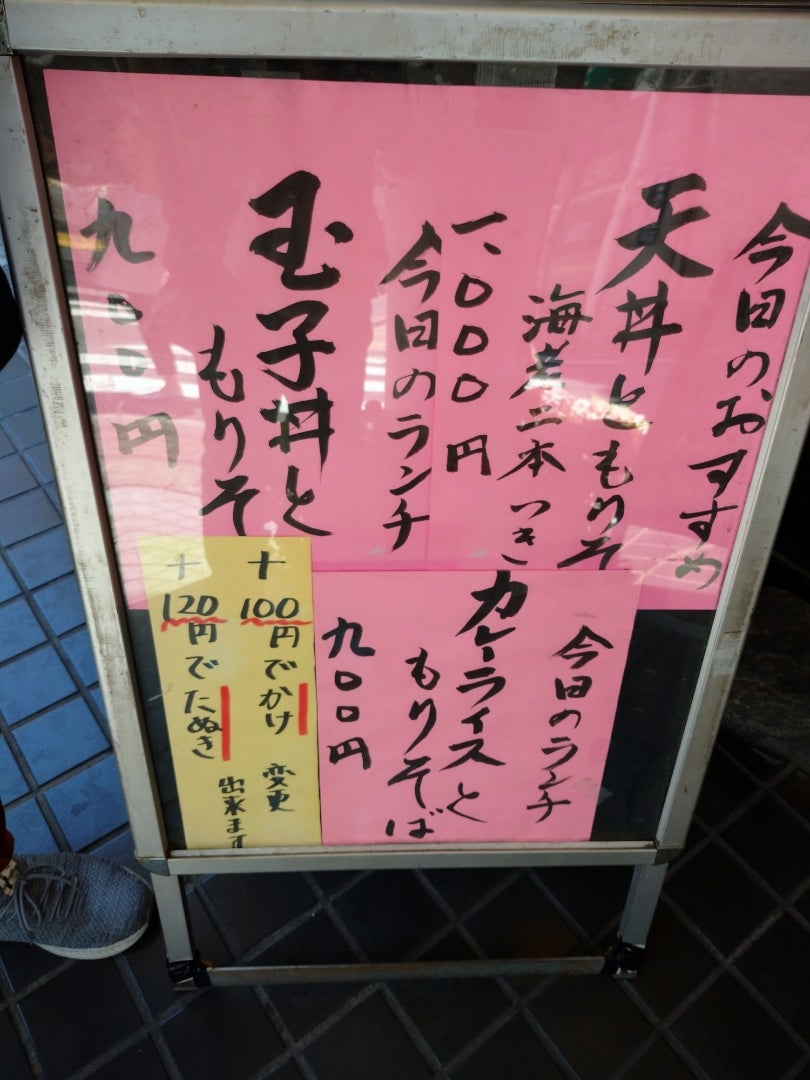 今日のおすすめ
天丼ともりそ
海老二本つき
一、〇〇〇円
今日のランチ
玉子丼と
もりそ
九〇〇円
今日のランチ
カレーライスと
もりそば
九〇〇円
+100円でかけ
+120円でたぬき
変更
出来ます